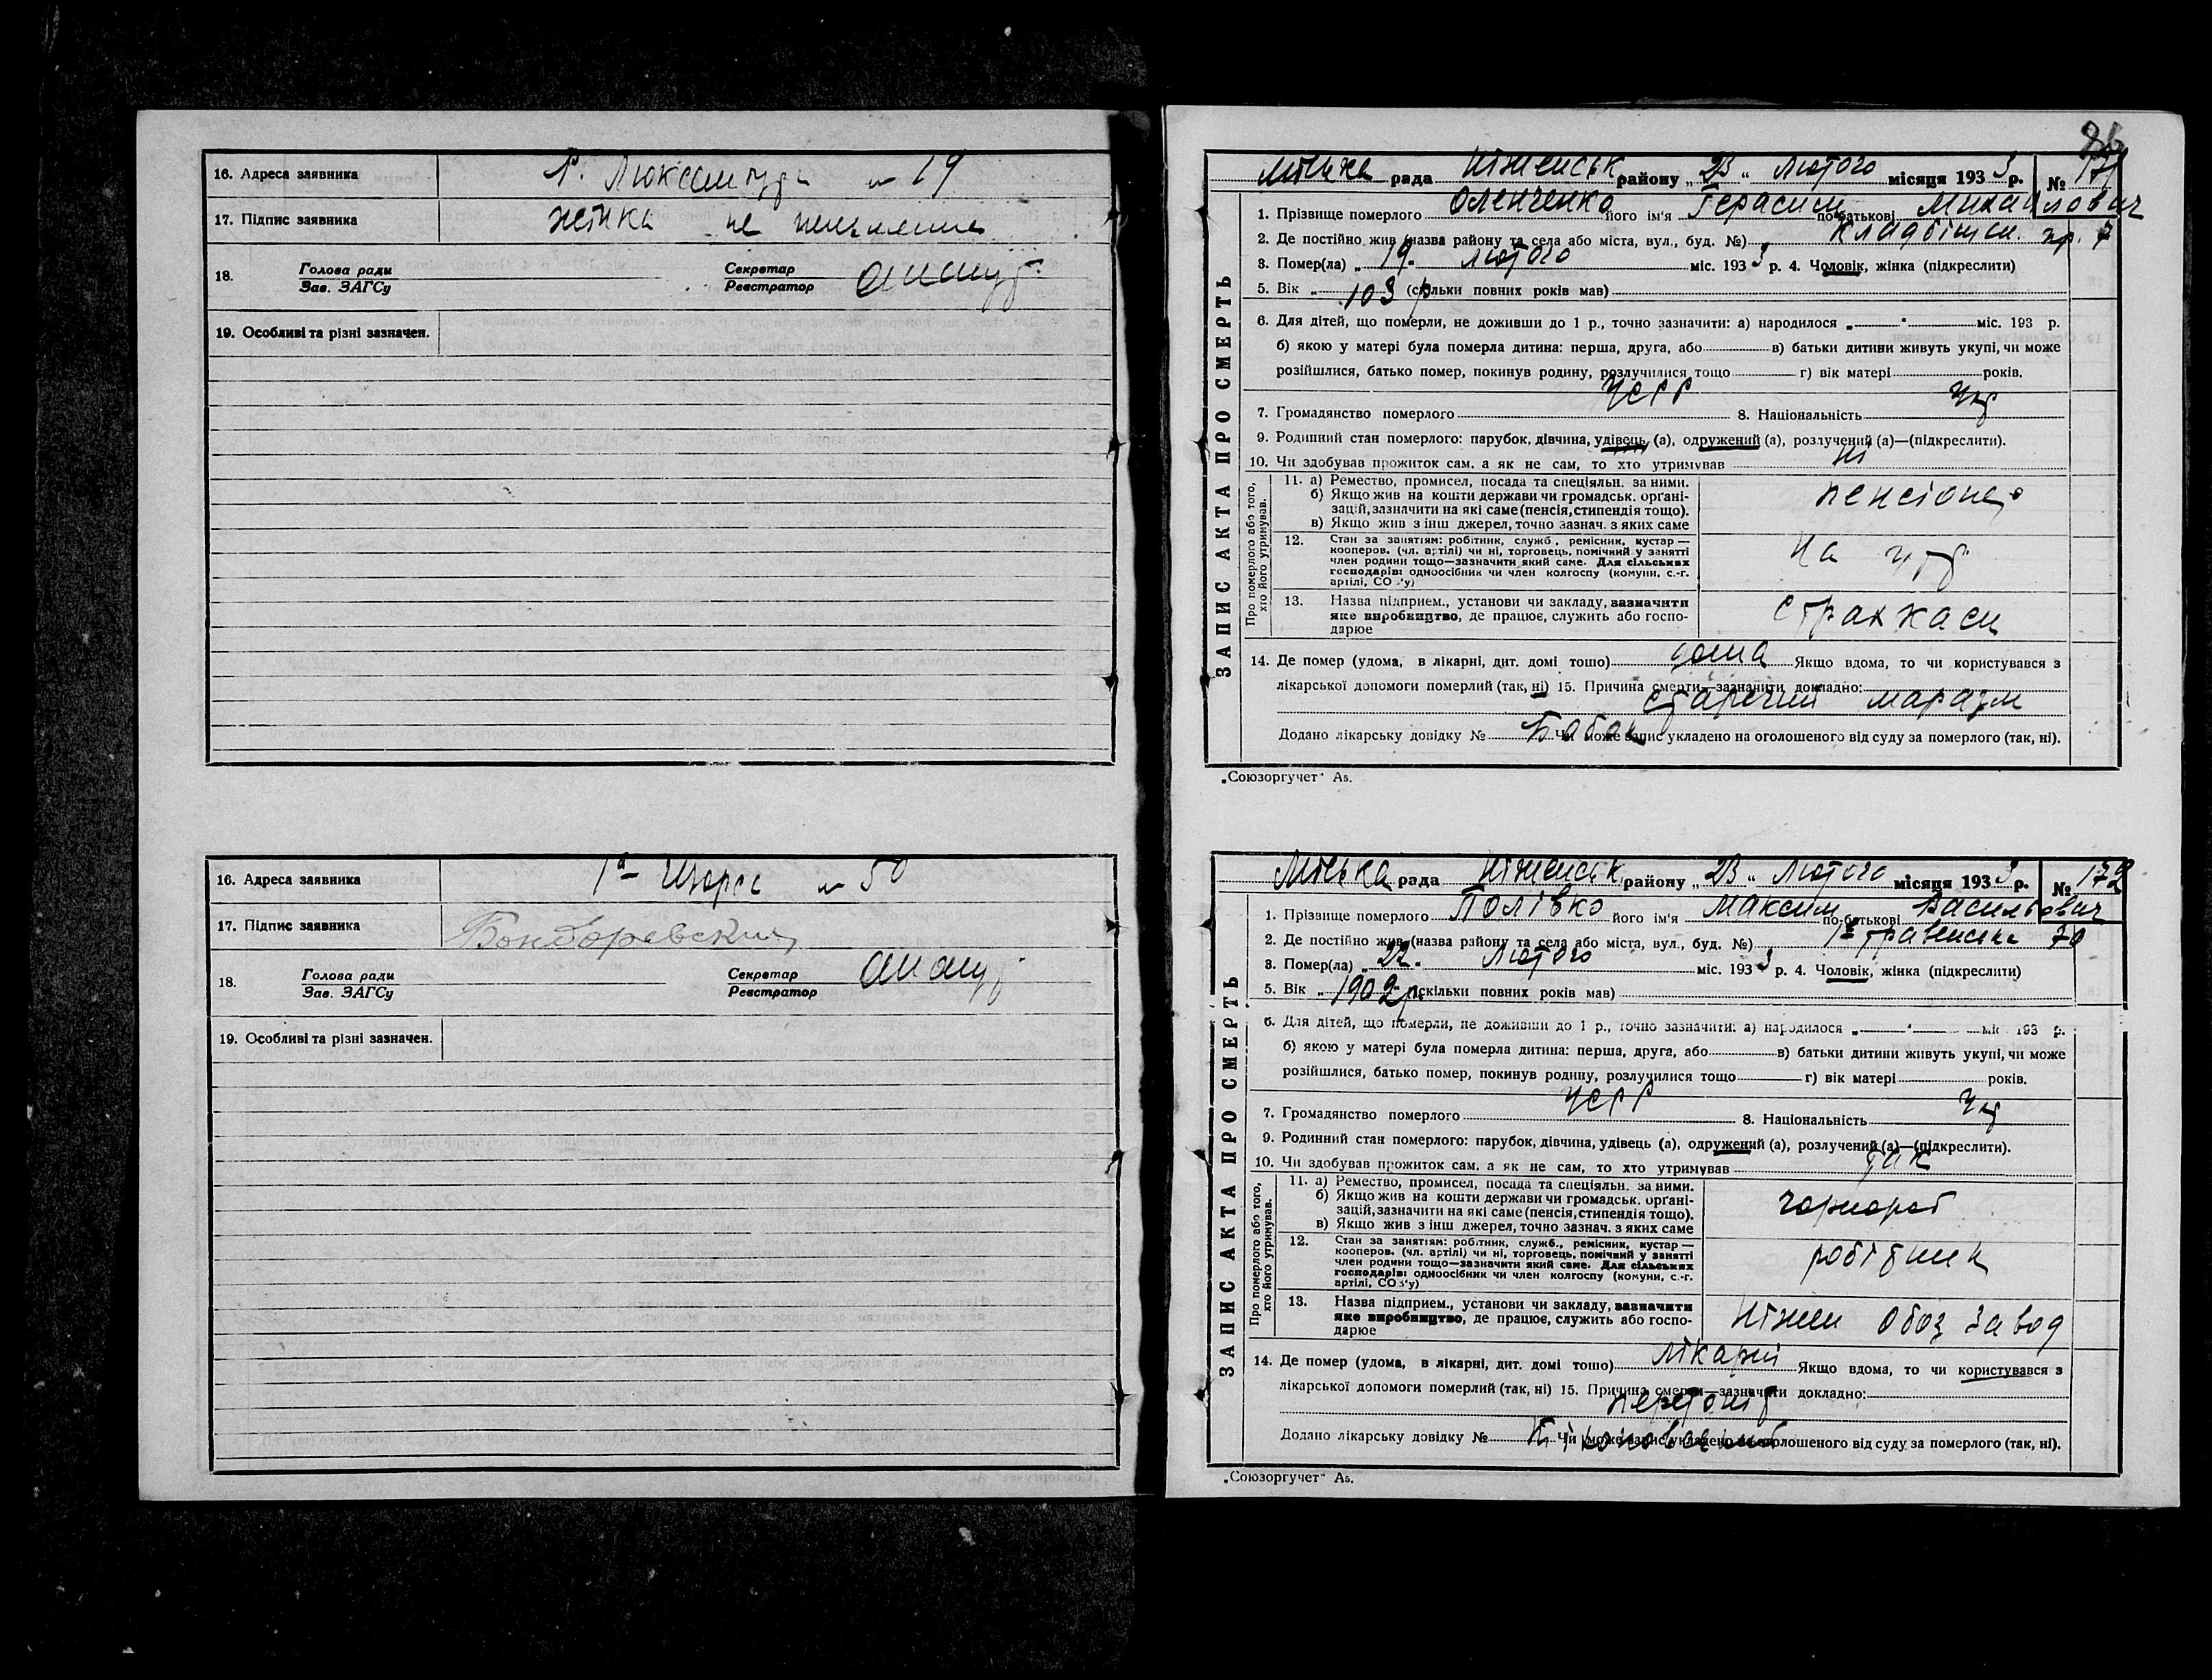 16. Адреса заявника Р. Люксембург № 19
17. Підпис заявника жінка не письменна
18. Голова ради Зав. ЗАГСу Секретар Реєстратор
19. Особливі та різні зазначен.
16. Адреса заявника 1а Щорса № 50
17. Підпис заявника
18. Голова ради Зав. ЗАГСу Секретар Реєстратор
19. Особливі та різні зазначен.
86
ЗАПИС АКТА ПРО СМЕРТЬ
Міська рада Ніженськ району „23“ Лютого місяця 1933 р. № 171
1. Прізвище померлого Оленченко його ім'я Герасим по-батькові Михайлович
2. Де постійно жив (назва району та села або міста, вул., буд. №) Кладбіщен. пр. 7
3. Помер(ла) „19. Лютого міс. 1933 р. 4. Чоловік, жінка (підкреслити)
5. Вік „103 р (скільки повних років мав)
6. Для дітей, що померли, не доживши до 1 р., точно зазначити: а) народилося „ “ міс. 193 р.
б) якою у матері була померла дитина: перша, друга, або в) батьки дитини живуть укупі, чи може
розійшлися, батько помер, покинув родину, розлучилися тощо г) вік матері років.
7. Громадянство померлого УСРР 8. Національність Укр
9. Родинний стан померлого: парубок, дівчина, удівець (а), одружений (а), розлучений (а)—(підкреслити).
10. Чи здобував прожиток сам, а як не сам, то хто утримував ні
Про померлого або того, хто його утримував.
11. а) Ремество, промисел, посада та спеціяльн. за ними.
б) Якщо жив на кошти держави чи громадськ. орґані-
зацій, зазначити на які саме (пенсія, стипендія тощо).
в) Якщо жив з інш джерел, точно зазнач. з яких саме
пенсіонер
12. Стан за занятіям: робітник, служб., ремісник, кустар —
кооперов. (чл. артілі) чи ні, торговець, помічний у занятті
член родини тощо—зазначити який саме. Для сільських
господарів: одноосібник чи член колгоспу (комуни, с.-г.
артілі, СОЗ'у)
На утр
13. Назва підприєм., установи чи закладу, зазначити
яке виробництво, де працює, служить або госпо-
дарює
Страхкаси
14. Де помер (удома, в лікарні, дит. домі тощо) дома Якщо вдома, то чи користувався з
лікарської допомоги померлий (так, ні) 15. Причина смерти—зазначити докладно:
старечий маразм
Додано лікарську довідку № Бабак Чи може запис укладено на оголошеного від суду за померлого (так, ні).
„Союзоргучет“ А5.
ЗАПИС АКТА ПРО СМЕРТЬ
Міська рада Ніженськ району „23“ Лютого місяця 1933 р. № 172
1. Прізвище померлого Полівко його ім'я Максим по-батькові Васильович
2. Де постійно жив (назва району та села або міста, вул., буд. №) 1е травенська 70
3. Помер(ла) „22. Лютого міс. 1933 р. 4. Чоловік, жінка (підкреслити)
5. Вік „1902 р. (скільки повних років мав)
6. Для дітей, що померли, не доживши до 1 р., точно зазначити: а) народилося „ “ міс. 193 р.
б) якою у матері була померла дитина: перша, друга, або в) батьки дитини живуть укупі, чи може
розійшлися, батько помер, покинув родину, розлучилися тощо г) вік матері років.
7. Громадянство померлого УСРР 8. Національність Укр
9. Родинний стан померлого: парубок, дівчина, удівець (а), одружений (а), розлучений (а)—(підкреслити).
10. Чи здобував прожиток сам, а як не сам, то хто утримував так
Про померлого або того, хто його утримував.
11. а) Ремество, промисел, посада та спеціяльн. за ними.
б) Якщо жив на кошти держави чи громадськ. орґані-
зацій, зазначити на які саме (пенсія, стипендія тощо).
в) Якщо жив з інш джерел, точно зазнач. з яких саме
чорнороб
12. Стан за занятіям: робітник, служб., ремісник, кустар —
кооперов. (чл. артілі) чи ні, торговець, помічний у занятті
член родини тощо—зазначити який саме. Для сільських
господарів: одноосібник чи член колгоспу (комуни, с.-г.
артілі, СОЗ'у)
робітник
13. Назва підприєм., установи чи закладу, зазначити
яке виробництво, де працює, служить або госпо-
дарює
Ніжен Обоз Завод
14. Де помер (удома, в лікарні, дит. домі тощо) лікарні Якщо вдома, то чи користувався з
лікарської допомоги померлий (так, ні) 15. Причина смерти—зазначити докладно:
перетоніт
Додано лікарську довідку № Чи може запис укладено на оголошеного від суду за померлого (так, ні).
„Союзоргучет“ А5.